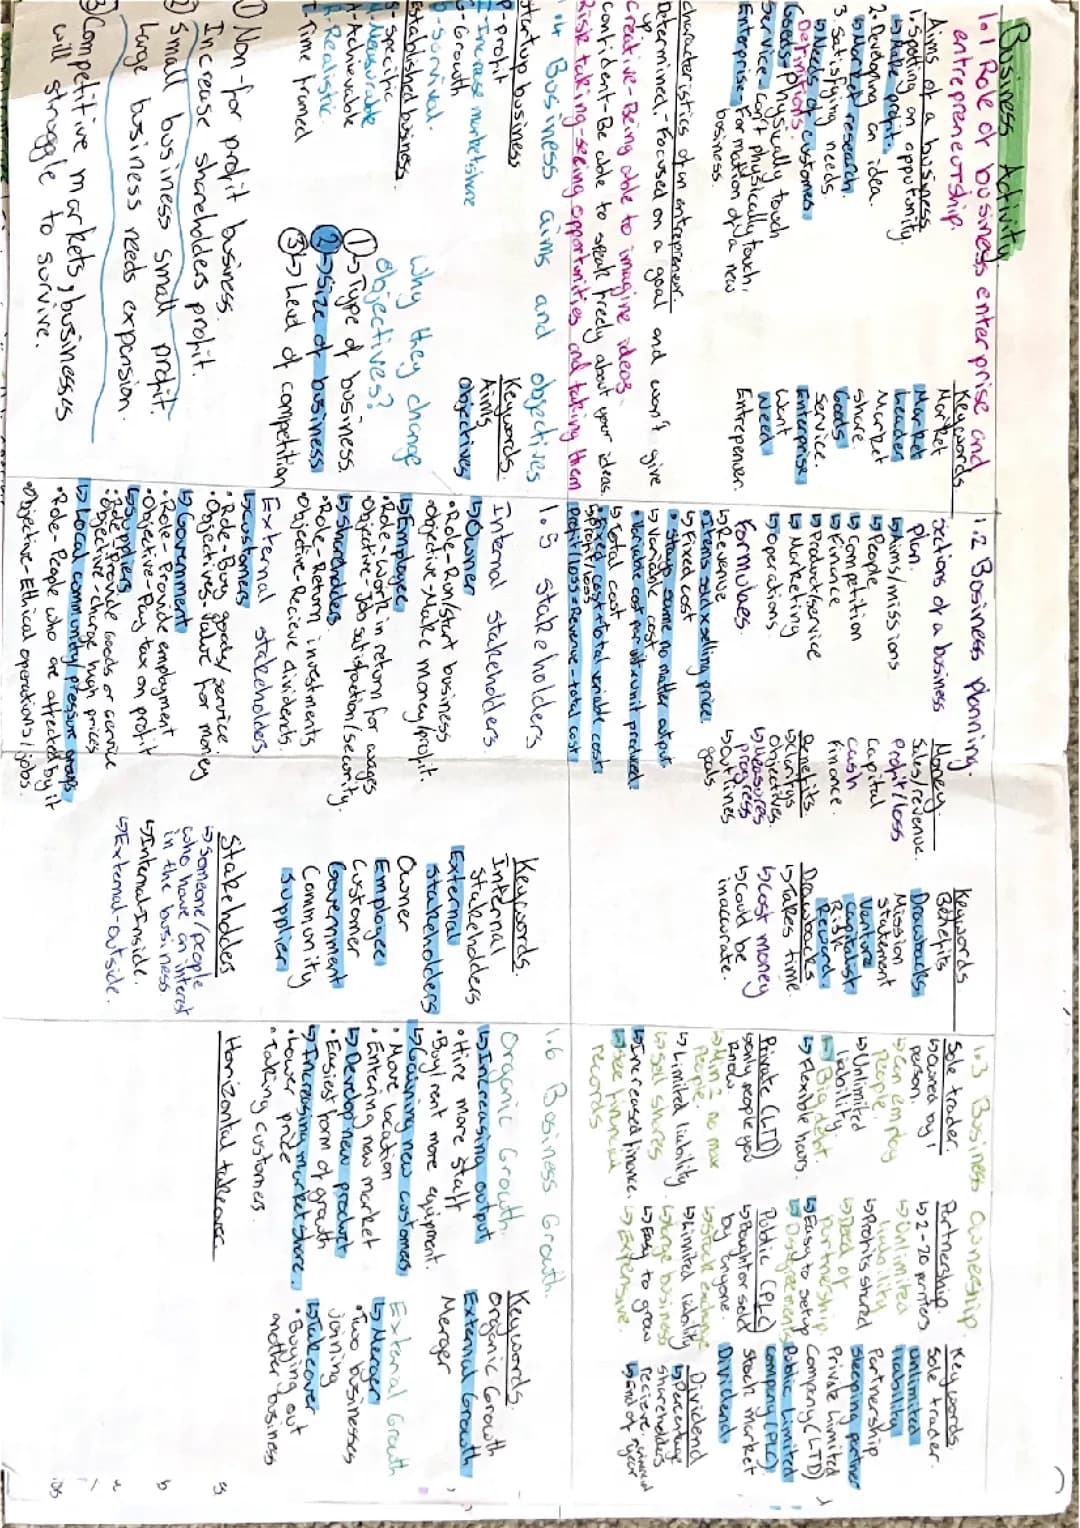 Business Activity
1.1 Role of business enterprise and
entrepreneurship.
Aims of a business
1. Spotting an opputunity.
↳Make profit.
2. Devolping an idea.
↳Market research.
3. Satisfying needs.
↳Needs of customers
Definitions:
Goods: physically touch
Service: can't physically touch.
Enterprise: Formation of a new
business.
Keywords
Market
Market
Leader
Market
Share
Goods
Service.
Enterprise
Want
Need
Entrepener.
Characteristics of an entrepreneur.
Determined - Focused on a goal and won't give
up.
Creative - Being able to imagine ideas.
Confident - Be able to speak freely about your ideas.
Risk taking - seeing oppurtunities and taking them
1.2 Business planning.
Sections of a business
Plan.
↳Aims/missions
↳People
↳Competition
↳Finance
↳Product/service
↳Marketing
↳Operations.
Money
Sales/revenue.
Profit/loss
Capital
Cash
Finance.
Keywords
Benefits
Drawbacks
Mission
Statement
Venture
Capitalist
Risk
Reward.
Formulaes.
↳Revenue
•Items sold x selling price.
↳Fixed cost
•Stays same no matter output
↳Variable cost
•Variable cost per unit x unit produced
↳Total cost
•Fixed cost + total variable costs
↳Profit/loss
Profit/loss = Revenue - total cost
Benefits
↳Clairitys
objectives.
↳Measures
progress
↳Outlines
goals.
Drawbacks
↳Takes time.
↳Cost money
↳Could be
inaccurate.
1.3 Business Ownership
Sole trader.
↳Owned by 1
person.
↳Can employ
people.
↳Unlimited
liability.
↳Big debt.
↳Flexible hours.
Partnership.
↳2-20 partners
↳Unlimited
liability
↳Profits shared
↳Deed of
Partnership.
↳Easy to setup
↳Disagreements
Keywords.
Sole trader.
Unlimited
liability
Partnership
Sleeping partner
Private Limited
Company (LTD)
Public Limited
company (PLC).
Stock market
Dividend
Private (LTD)
↳only people you
know
↳Min 2 no max
People.
↳Limited liability.
↳Sell shares
↳Increased finance.
↳See financial
records
Public (PLC)
↳Bought or sold
by anyone.
↳Stock exchange
↳Limited liability
↳Large business
↳Easy to grow
↳Extensive.
Dividend
↳Percentage
shareholders
recieve
↳End of year
1.4 Business aims and objectives
Startup business
P-Profit
I-Increase marketshare
G-Growth
S-Survival.
Established business.
S-Specific
M-Measurable
A-Achievable
R-Realistic.
T-Time framed
Keywords.
Aims
Objectives
Why they change
objectives?
①↳Type of business.
②↳Size of business
③↳Level of competition
① Non-for profit business.
Increase shareholders profit.
② Small business small profit.
Large business needs expension.
③ Competitive markets, businesses
will struggle to survive.
1.5 Stakeholders
Internal stakeholders
↳Owner
•Role-Run/start business
•Objective-Make money/profit.
↳Employee
•Role-Work in return for wages
•Objective-Job satisfaction/security.
↳Shareholders.
•Role-Return investments
•Objective-Recieve dividends.
External stakeholders.
↳Customers
•Role-Buy goods/service.
•Objectives-Value for money
↳Government
•Role-Provide employment
•Objective-Pay tax on profit
↳Suppliers
•Role-Provide goods or service
•Objective-charge high prices
↳Local community/pressure groups
•Role-People who are affected by it
•Objective-Ethical operations/jobs.
Keywords.
Internal
Stakeholders
External
Stakeholders
Owner
Employee
Customer
Government
Community
Supplier
Stakeholders
↳Someone/people
who have an interest
in the business.
↳Internal-Inside.
↳External-outside.
1.6 Business Growth.
Organic Growth
↳Increasing output
•Hire more staff
•Buy/rent more equipment.
↳Gaining new customers
•Move location
•Entering new market
↳Develop new product
•Easiest form of growth
↳Increasing market share.
•Lower price
•Taking customers.
Keywords.
Organic Growth
External Growth
Merger
External Growth
↳Merger
•Two businesses
joining
↳Takeover
•Buying out
another business
Horizontal takeover